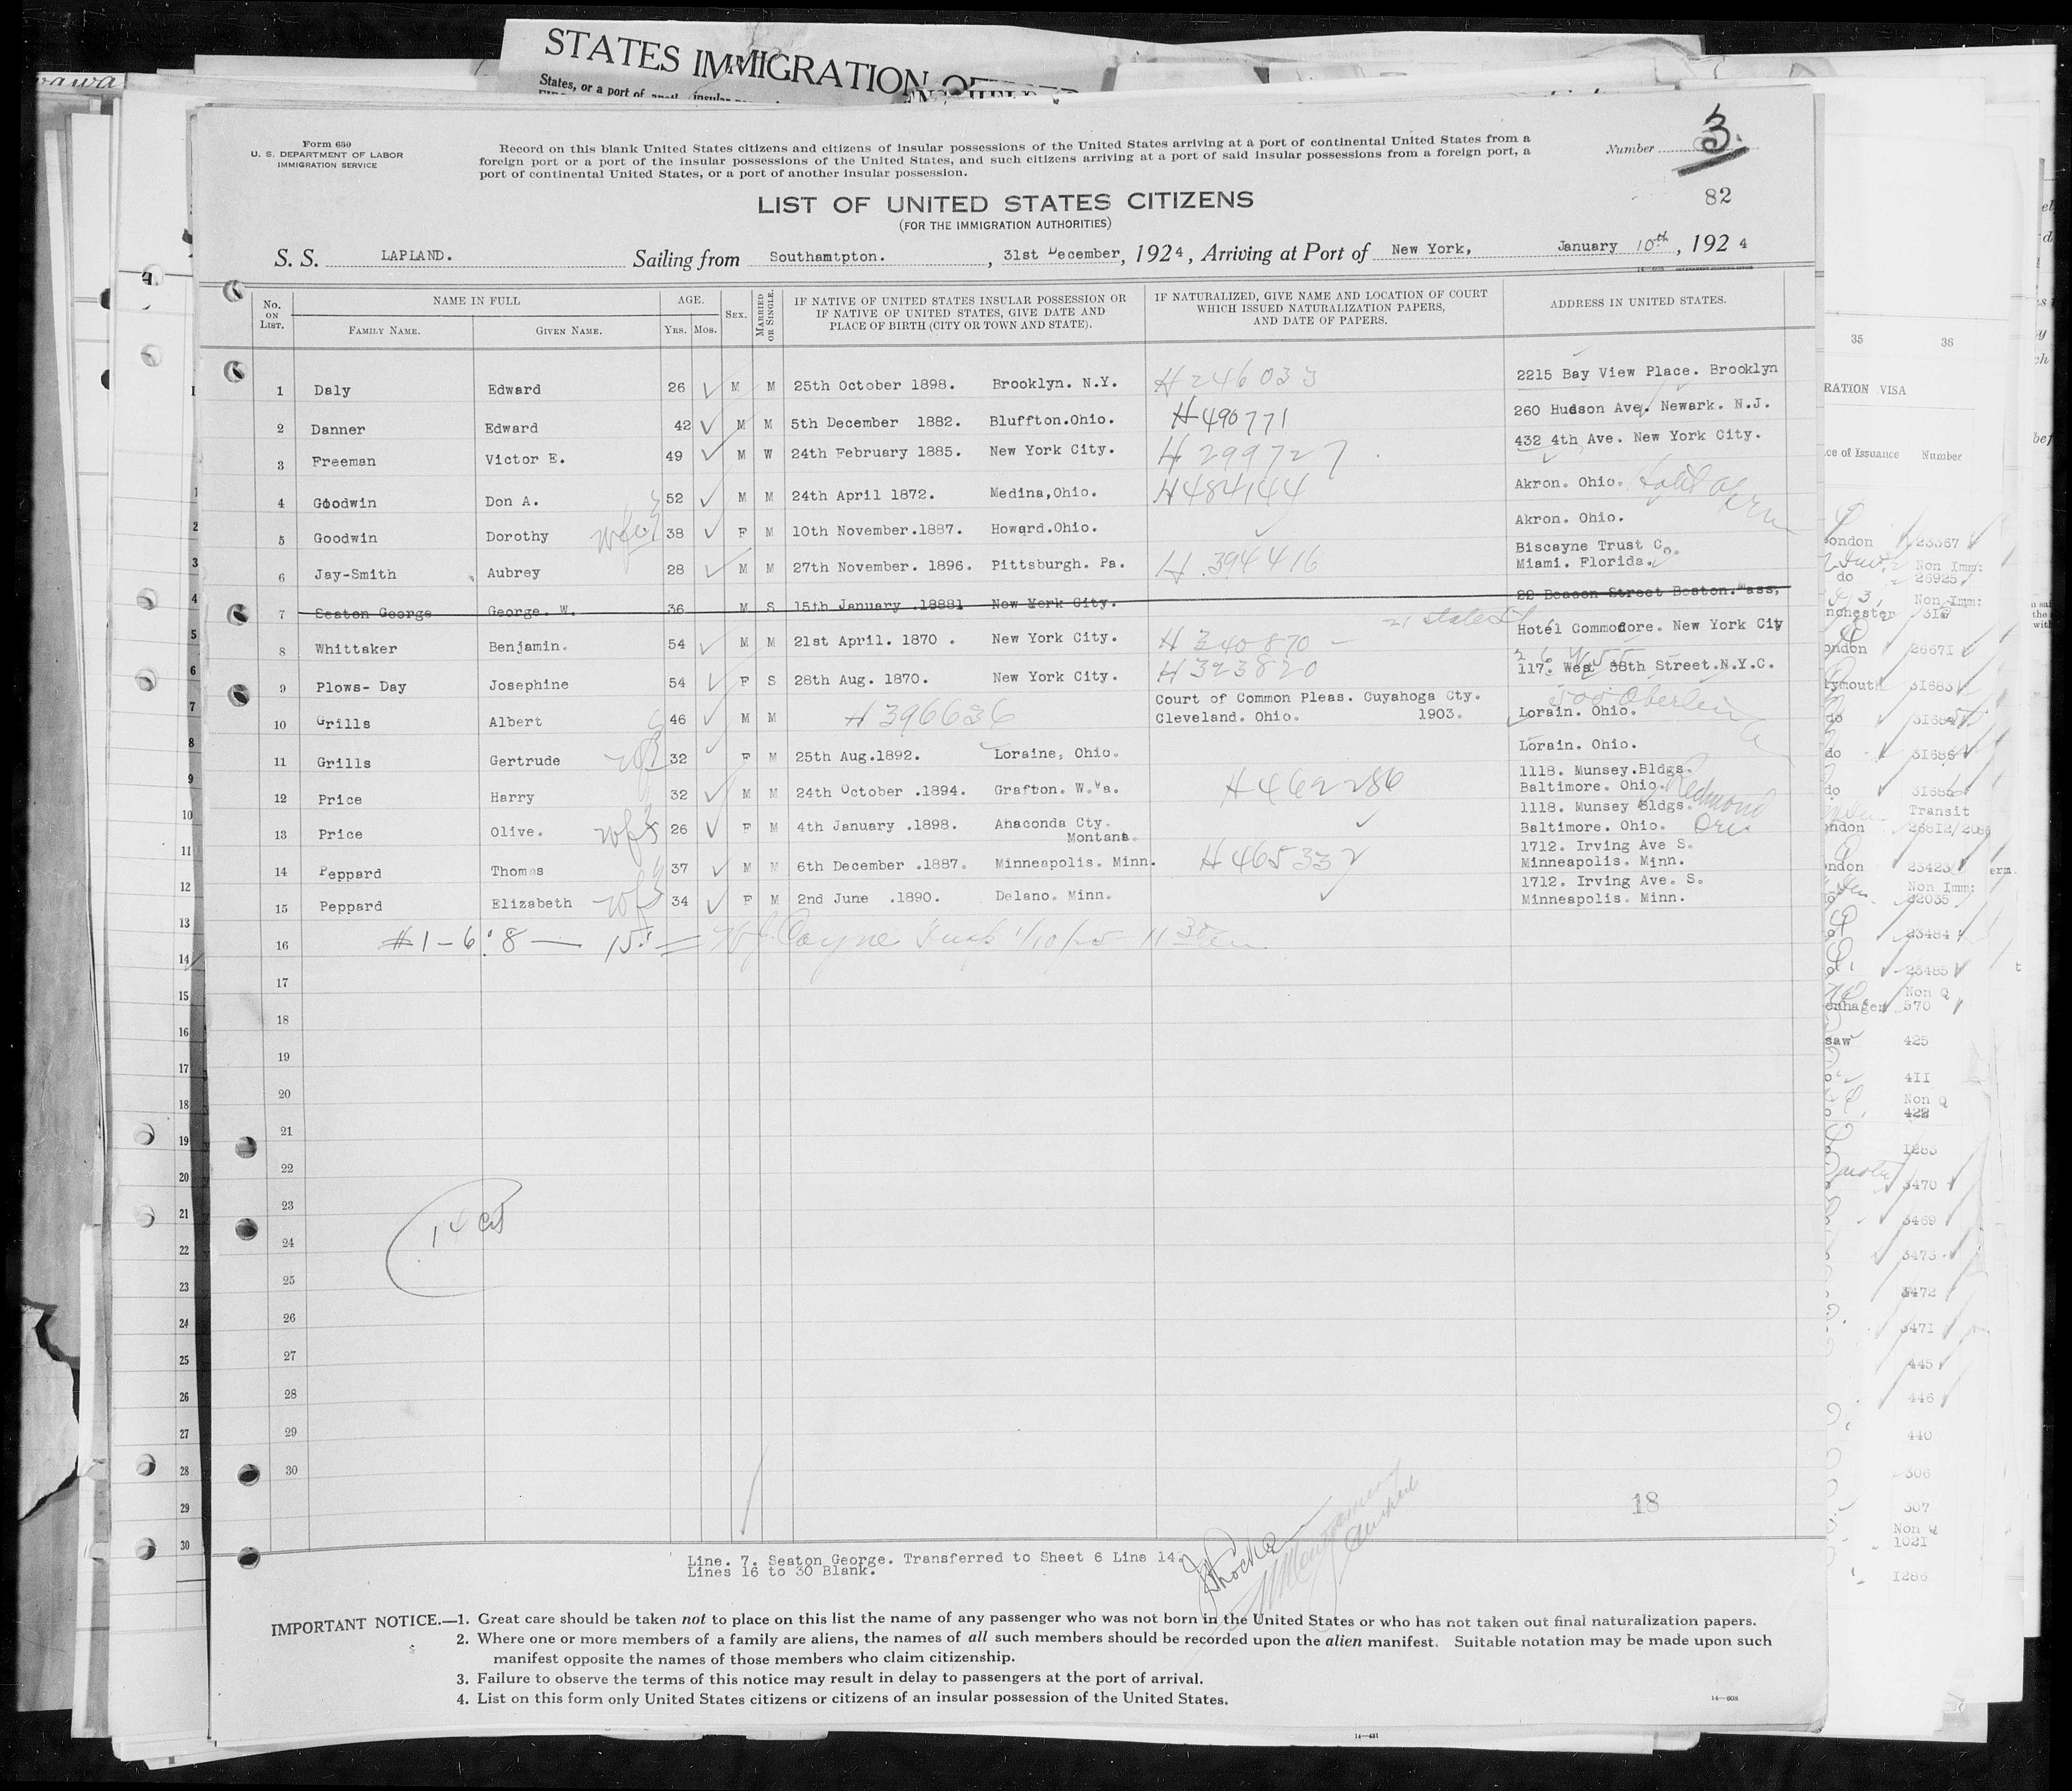 STATES IMMIGRATION
States, or a port of
Form 630
U. S. DEPARTMENT OF LABOR
IMMIGRATION SERVICE
Record on this blank United States citizens and citizens of insular possessions of the United States arriving at a port of continental United States from a
foreign port or a port of the insular possessions of the United States, and such citizens arriving at a port of said insular possessions from a foreign port, a
port of continental United States, or a port of another insular possession.
Number 3.
82
LIST OF UNITED STATES CITIZENS
(FOR THE IMMIGRATION AUTHORITIES)
S. S. LAPLAND. Sailing from Southamtpton. , 31st December, 1924, Arriving at Port of New York, January 10th, 1924
No. ON LIST. NAME IN FULL FAMILY NAME. GIVEN NAME. AGE. YRS. MOS. SEX. MARRIED OR SINGLE. IF NATIVE OF UNITED STATES INSULAR POSSESSION OR IF NATIVE OF UNITED STATES, GIVE DATE AND PLACE OF BIRTH (CITY OR TOWN AND STATE). IF NATURALIZED, GIVE NAME AND LOCATION OF COURT WHICH ISSUED NATURALIZATION PAPERS, AND DATE OF PAPERS. ADDRESS IN UNITED STATES.
1 Daly Edward 26 M M 25th October 1898. Brooklyn. N.Y. H 246033 2215 Bay View Place. Brooklyn
2 Danner Edward 42 M M 5th December 1882. Bluffton.Ohio. H490771 260 Hudson Ave. Newark. N.J.
3 Freeman Victor E. 49 M W 24th February 1885. New York City. H 299727 432 4th Ave. New York City.
4 Goodwin Don A. 52 M M 24th April 1872. Medina,Ohio. H484144 Akron. Ohio.
5 Goodwin Dorothy wf 38 F M 10th November.1887. Howard.Ohio. Akron. Ohio.
6 Jay-Smith Aubrey 28 M M 27th November. 1896. Pittsburgh. Pa. H.394416 Biscayne Trust Co. Miami. Florida.
7 Seaton George George. W. 36 M S 15th January .18881 New York City. 22 Beacon Street Boston.Mass,
8 Whittaker Benjamin. 54 M M 21st April. 1870 . New York City. H 340870 — 21 State St Hotel Commodore. New York City
9 Plows- Day Josephine 54 F S 28th Aug. 1870. New York City. H323820 117. West 38th Street.N.Y.C.
10 Grills Albert 46 M M H396636 Court of Common Pleas. Cuyahoga Cty. Cleveland. Ohio. 1903. Lorain. Ohio. 500 Oberlin
11 Grills Gertrude wf 32 F M 25th Aug.1892. Loraine, Ohio. Lorain. Ohio.
12 Price Harry 32 M M 24th October .1894. Grafton. W.Va. H462286 1118. Munsey.Bldgs. Baltimore. Ohio. Redmond
13 Price Olive. wf 26 F M 4th January .1898. Anaconda Cty. Montana. 1118. Munsey Bldgs. Baltimore. Ohio. Ore.
14 Peppard Thomas 37 M M 6th December .1887. Minneapolis. Minn. H465332 1712. Irving Ave S. Minneapolis. Minn.
15 Peppard Elizabeth wf 34 F M 2nd June .1890. Delano. Minn. 1712. Irving Ave. S. Minneapolis. Minn.
16 #1-6: 8 — 15: = 1/10/25
17
18
19
20
21
22
23
24
25
26
27
28
29
30
18
Line. 7. Seaton George. Transferred to Sheet 6 Line 14.
Lines 16 to 30 Blank.
IMPORTANT NOTICE.—1. Great care should be taken not to place on this list the name of any passenger who was not born in the United States or who has not taken out final naturalization papers.
2. Where one or more members of a family are aliens, the names of all such members should be recorded upon the alien manifest. Suitable notation may be made upon such
manifest opposite the names of those members who claim citizenship.
3. Failure to observe the terms of this notice may result in delay to passengers at the port of arrival.
4. List on this form only United States citizens or citizens of an insular possession of the United States.
14—608
35 36
RATION VISA
ce of Issuance Number
ondon 23367
Non Imm:
do 26925
Non Imm:
nchester 316
ondon 26671
lymouth 31683
do 31684
do 31685
do 31686
Transit
ondon 26812/2086
ondon 23423
Non Imm:
22035
23484
23485
Non Q
enhagen 570
saw 425
411
Non Q
422
1283
3470
3469
3473
3472
3471
445
446
440
306
307
Non Q
1021
1286